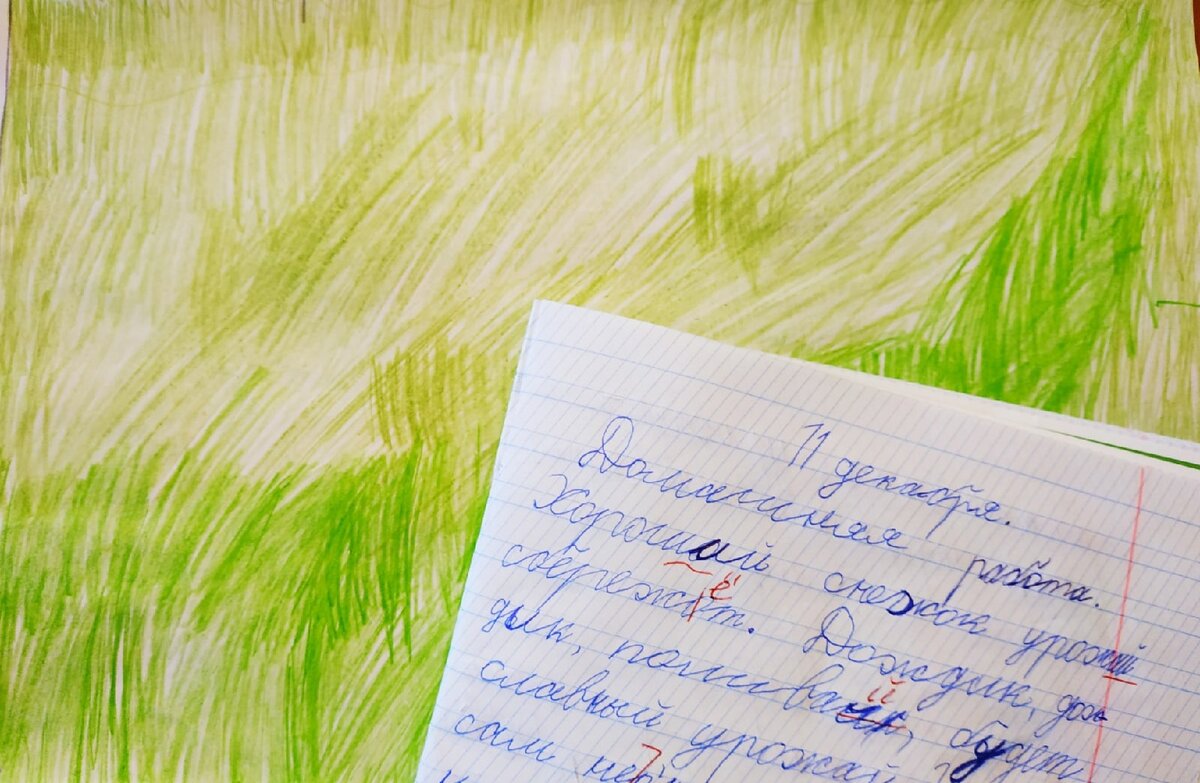 11 декабря.
Домашняя работа.
Хорошай снежок урожий
сбережёт. Дождик, дож
дик, поливай, будет
славный урожай
сам не